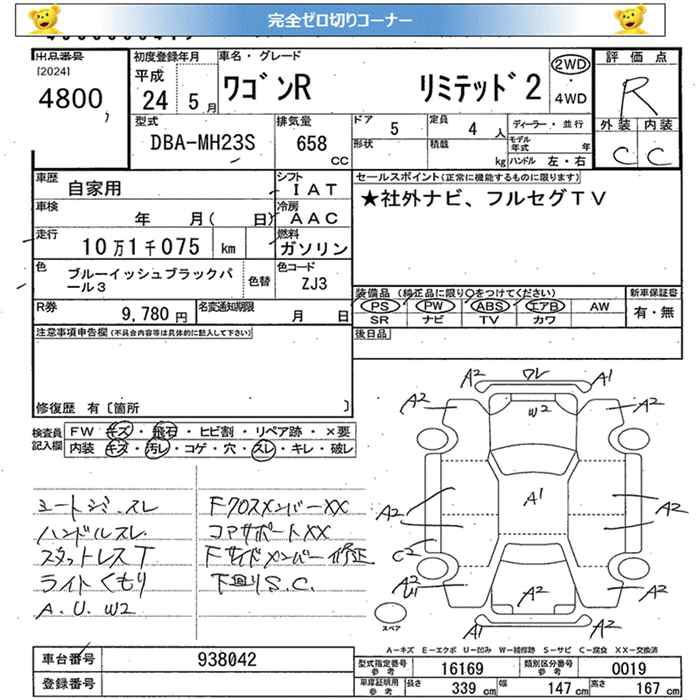 完全ゼロ切りコーナー
出品番号
[2024]
4800
初度登録年月
平成
24 5月
車名・グレード
ワゴンR リミテッド2
2WD
・
4WD
評価点
R
型式
DBA-MH23S
排気量
658
CC
ドア
5
定員
4人
ディーラー・並行
形状
積載
kg
モデル年式
年
ハンドル 左・右
外装 内装
C C
車歴
自家用
シフト
IAT
車検
年 月( 日)
冷房
AAC
走行
10万1千075 km
燃料
ガソリン
色
ブルーイッシュブラックパール3
色替
色コード
ZJ3
R券
9,780円
名変通知期限
月 日
セールスポイント(正常に機能するものに限ります)
★社外ナビ、フルセグTV
装備品(純正品に限り○をつけてください)
PS PW ABS エアB AW
SR ナビ TV カワ
新車保証書
有・無
後日品
注意事項申告欄(不具合内容等は具体的に記入して下さい)
修復歴 有〔箇所 〕
検査員記入欄
FW キズ・飛石・ヒビ割・リペア跡・×要
内装 キズ・汚レ・コゲ・穴・スレ・キレ・破レ
シートシミ.スレ
ハンドルスレ.
スタットレスT
ライトくもり
A.U.W2
FクロスメンバーXX
コアサポートXX
Fサイドメンバー修正
下廻りS.C.
A2 ワレ A1
A2 W2 A2
A2 A1 A2
C2
A2 A2
A2
A1 A2
スペア
A-キズ E-エクボ U-凹み W-補修跡 S-サビ C-腐食 XX-交換済
車台番号
938042
登録番号
型式指定番号
参考
16169
類別区分番号
参考
0019
車庫証明用
参考
長さ 339 cm
幅 147 cm
高さ 167 cm